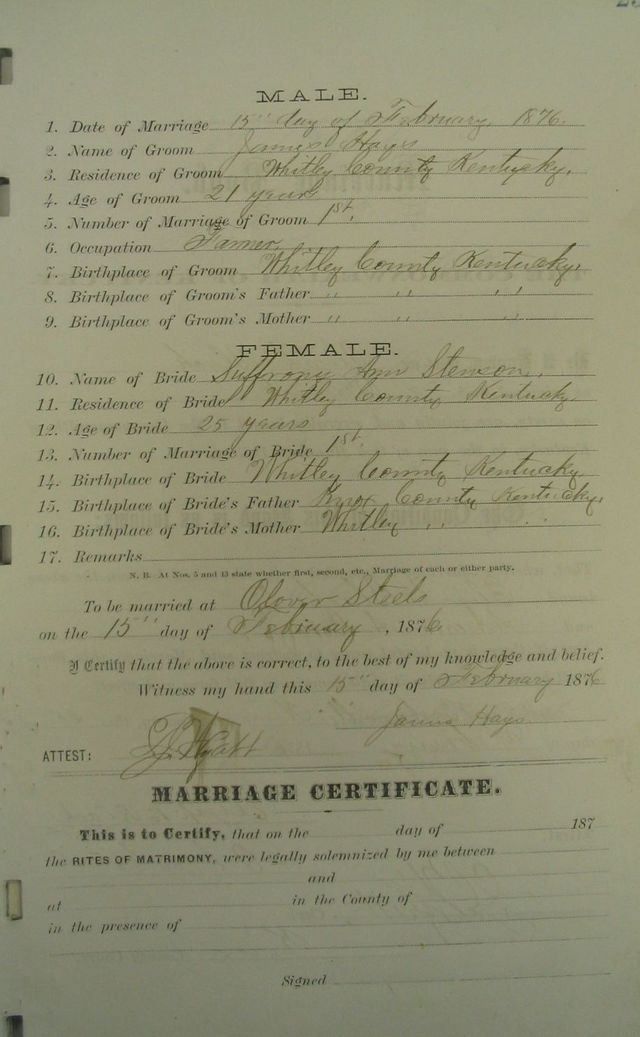 MALE.
1. Date of Marriage 15" day of February, 1876.
2. Name of Groom James Hays
3. Residence of Groom Whitley County Kentucky.
4. Age of Groom 21 years
5. Number of Marriage of Groom 1st.
6. Occupation Farmer
7. Birthplace of Groom Whitley County Kentucky.
8. Birthplace of Groom's Father " " "
9. Birthplace of Groom's Mother " " "
FEMALE.
10. Name of Bride Ann
11. Residence of Bride Whitley County Kentucky
12. Age of Bride 25 years
13. Number of Marriage of Bride 1st.
14. Birthplace of Bride Whitley County Kentucky
15. Birthplace of Bride's Father Knox County Kentucky.
16. Birthplace of Bride's Mother Whitley " "
17. Remarks
N. B. At Nos. 5 and 13 state whether first, second, etc., Marriage of each or either party.
To be married at Steels
on the 15" day of February, 1876
I Certify that the above is correct, to the best of my knowledge and belief.
Witness my hand this 15" day of February 1876
James Hays
ATTEST: Wyatt
MARRIAGE CERTIFICATE.
This is to Certify, that on the day of 187
the RITES OF MATRIMONY, were legally solemnized by me between
and
at in the County of
in the presence of
Signed